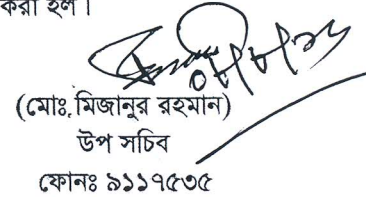 করা হল।
(মোঃ মিজানুর রহমান)
উপ সচিব
ফোনঃ ৯১১৭৫৩৫